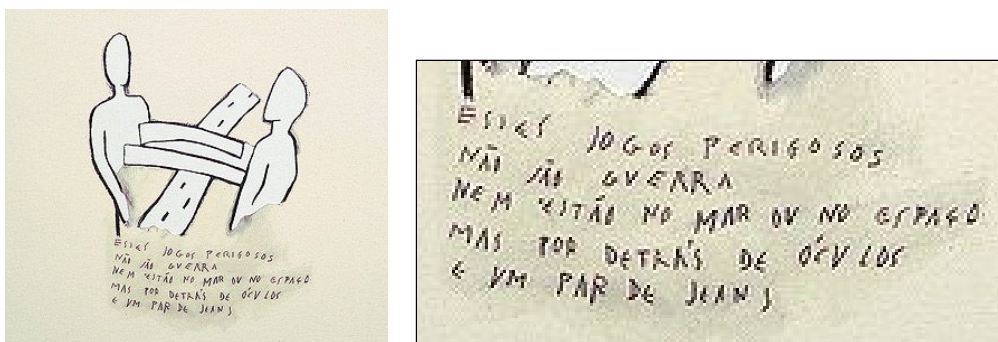 ESSES JOGOS PERIGOSOS
NÃO SÃO GUERRA
NEM ESTÃO NO MAR OU NO ESPAÇO
MAS POR DETRÁS DE ÓCULOS
E UM PAR DE JEANS
ESSES JOGOS PERIGOSOS
NÃO SÃO GUERRA
NEM ESTÃO NO MAR OU NO ESPAÇO
MAS POR DETRÁS DE ÓCULOS
E UM PAR DE JEANS